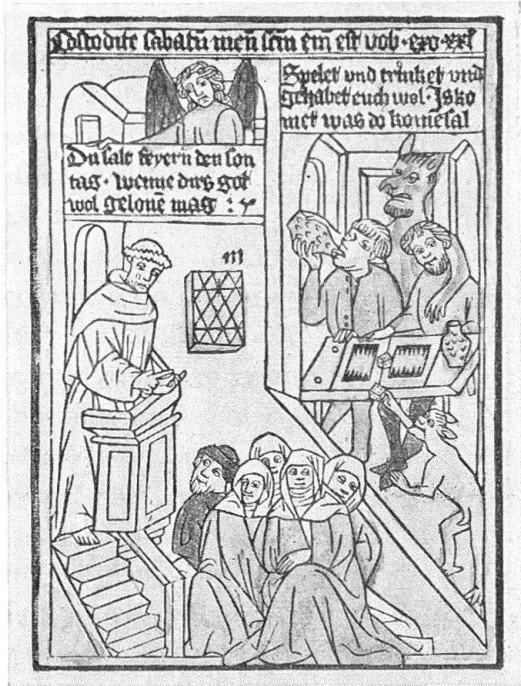 Costodite sabatū meū scm̄ em̄ est vob · exo · xxxi
Du salt feyern den son
tag · wenne dirs got
wol gelonē mag :
Spelet vnd trinket vnd
gehabet euch wol · Is ko
met was do komē sal
m